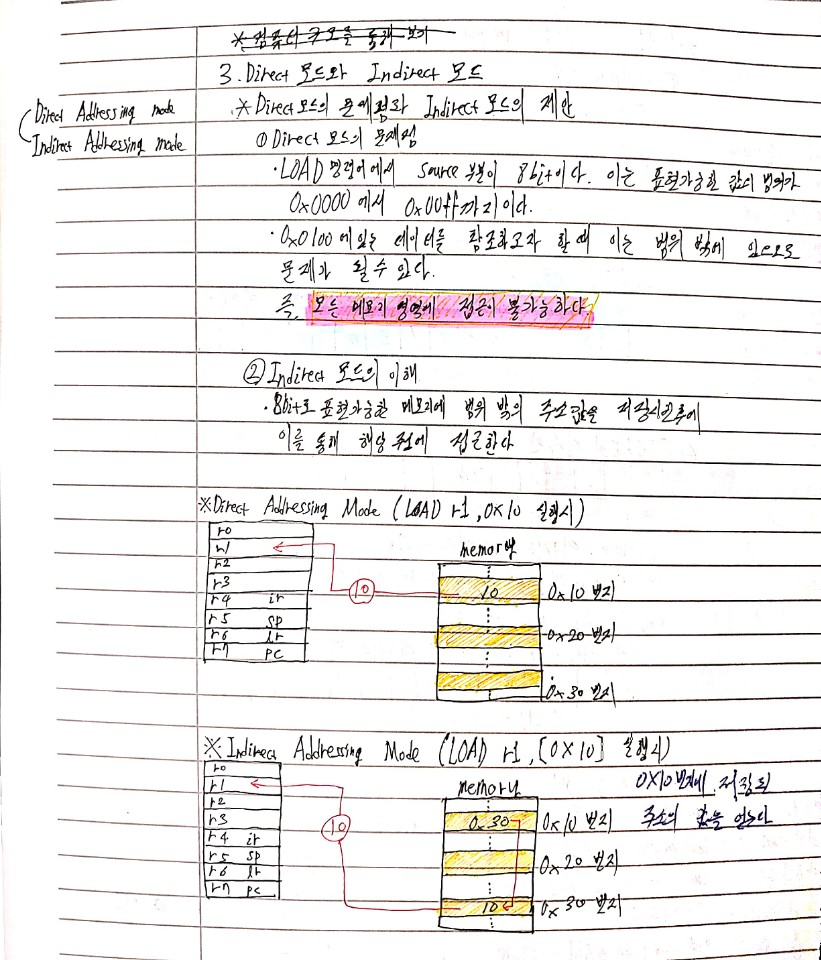 ※ 컴퓨터 구조를 통해 보기
3. Direct 모드와 Indirect 모드
Direct Addressing mode
Indirect Addressing mode
※ Direct 모드의 문제점과 Indirect 모드의 제안
① Direct 모드의 문제점
· LOAD 명령어에서 source 부분이 8bit이다. 이는 표현가능한 값의 범위가
0x0000 에서 0x00ff까지이다.
· 0x0100 에 있는 데이터를 참조하고자 할 때 이는 범위 밖에 있으므로
문제가 될 수 있다.
즉, 모든 메모리 영역에 접근이 불가능하다.
② Indirect 모드의 이해
· 8bit로 표현가능한 메모리에 범위 밖의 주소값을 저장시킨후에
이를 통해 해당 주소에 접근한다
※Direct Addressing Mode (LOAD r1, 0x10 실행시)
r0
r1
r2
r3
r4 ir
r5 sp
r6 lr
r7 pc
10
memory
10 0x10 번지
0x20 번지
0x30 번지
※ Indirect Addressing Mode (LOAD r1, [0x10] 실행시)
r0
r1
r2
r3
r4 ir
r5 sp
r6 lr
r7 pc
10
memory
0x30 0x10 번지
0x20 번지
10 0x30 번지
0x10번지에 저장된
주소의 값을 얻는다